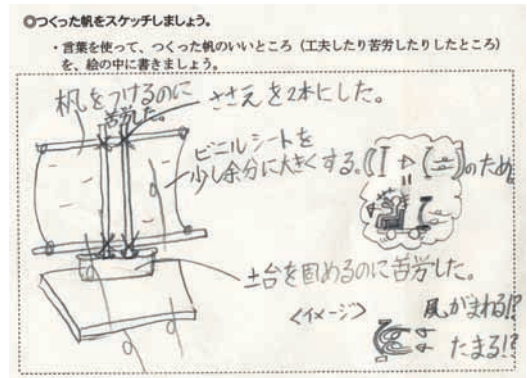 ◎つくった帆をスケッチしましょう。
・言葉を使って、つくった帆のいいところ（工夫したり苦労したりしたところ）
を、絵の中に書きましょう。
帆をつけるのに
苦労した。
ささえを2本にした。
ビニルシートを
少し余分に大きくする。
のため
土台を固めるのに苦労した。
<イメージ>
風がまわる!?
たまる!?